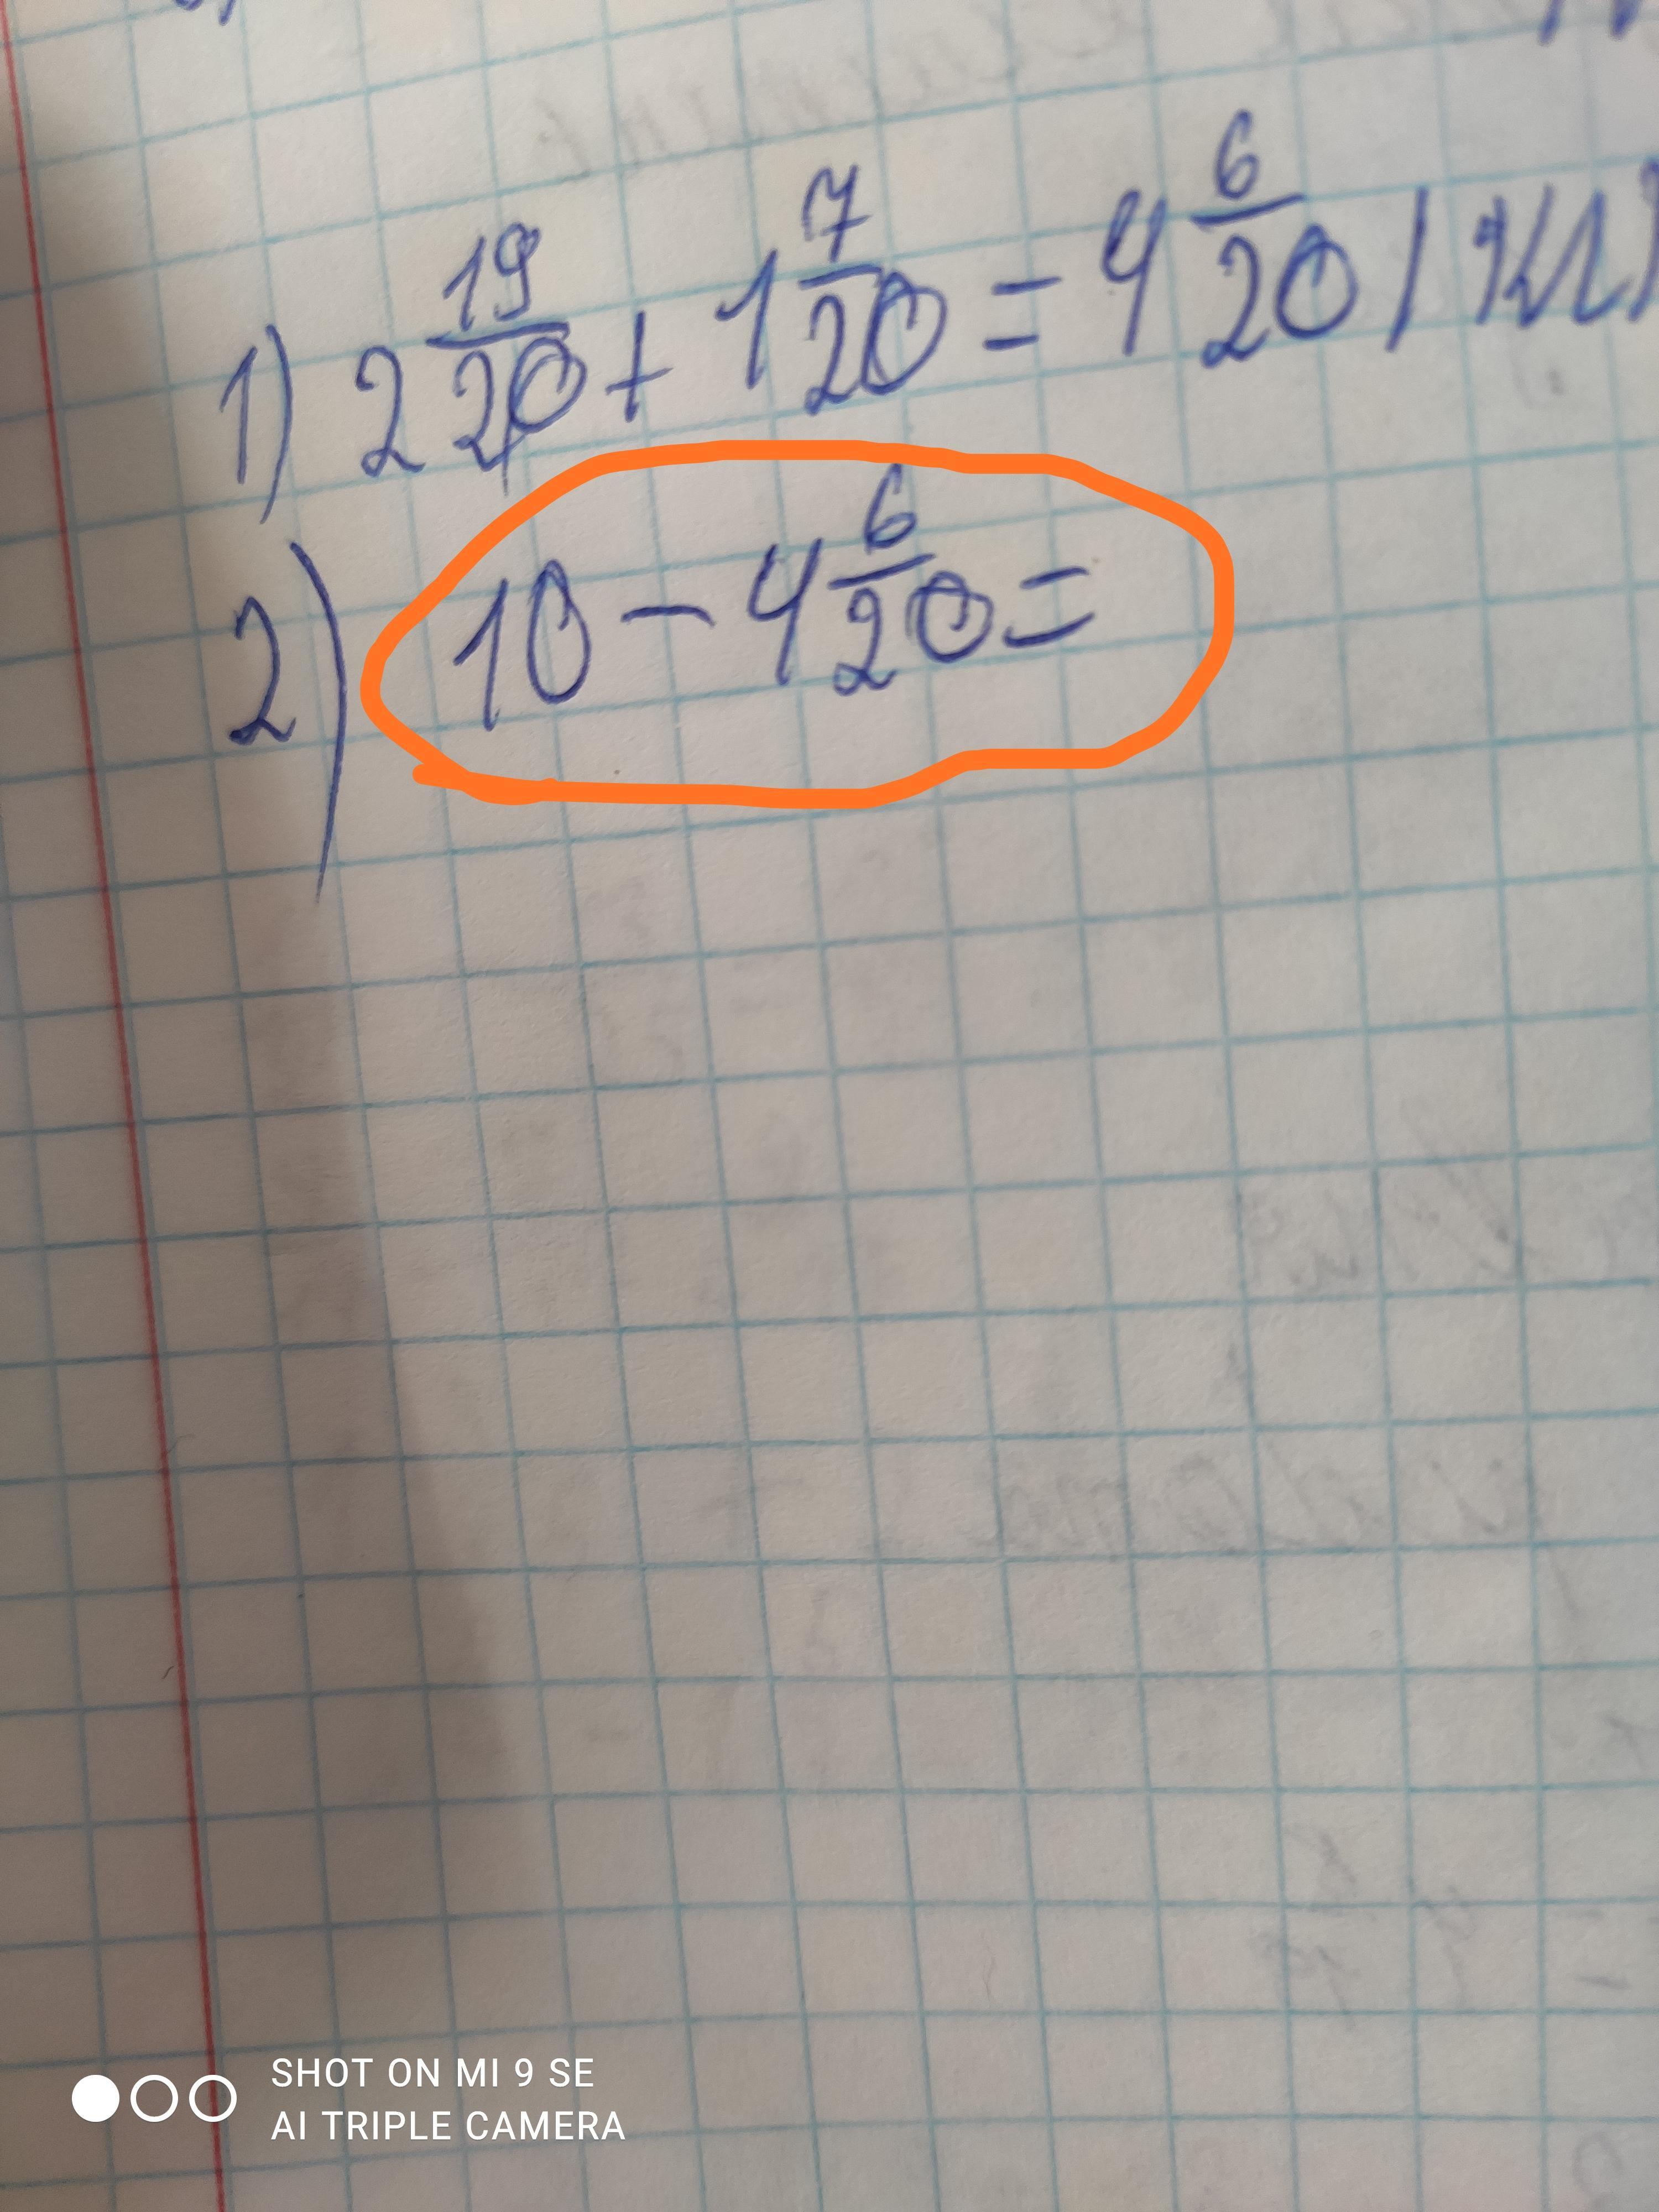 1) 2 19/20 + 1 7/20 = 4 6/20
2) 10 - 4 6/20 =
SHOT ON MI 9 SE
AI TRIPLE CAMERA